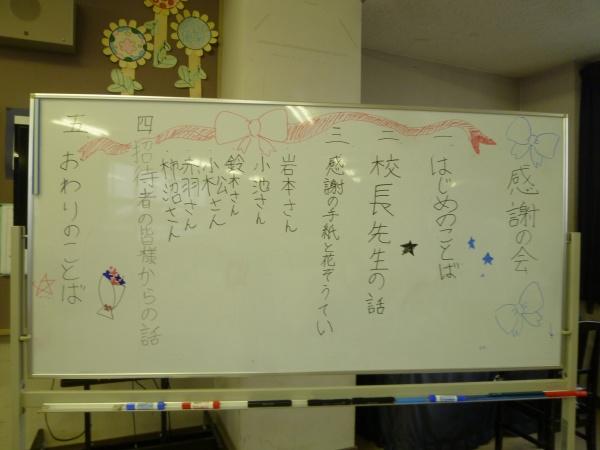 感謝の会
一 はじめのことば
二 校長先生の話
三 感謝の手紙と花ぞうてい
岩本さん
小池さん
鈴木さん
小松さん
赤羽さん
柿沼さん
四 招待者の皆様からの話
五 おわりのことば